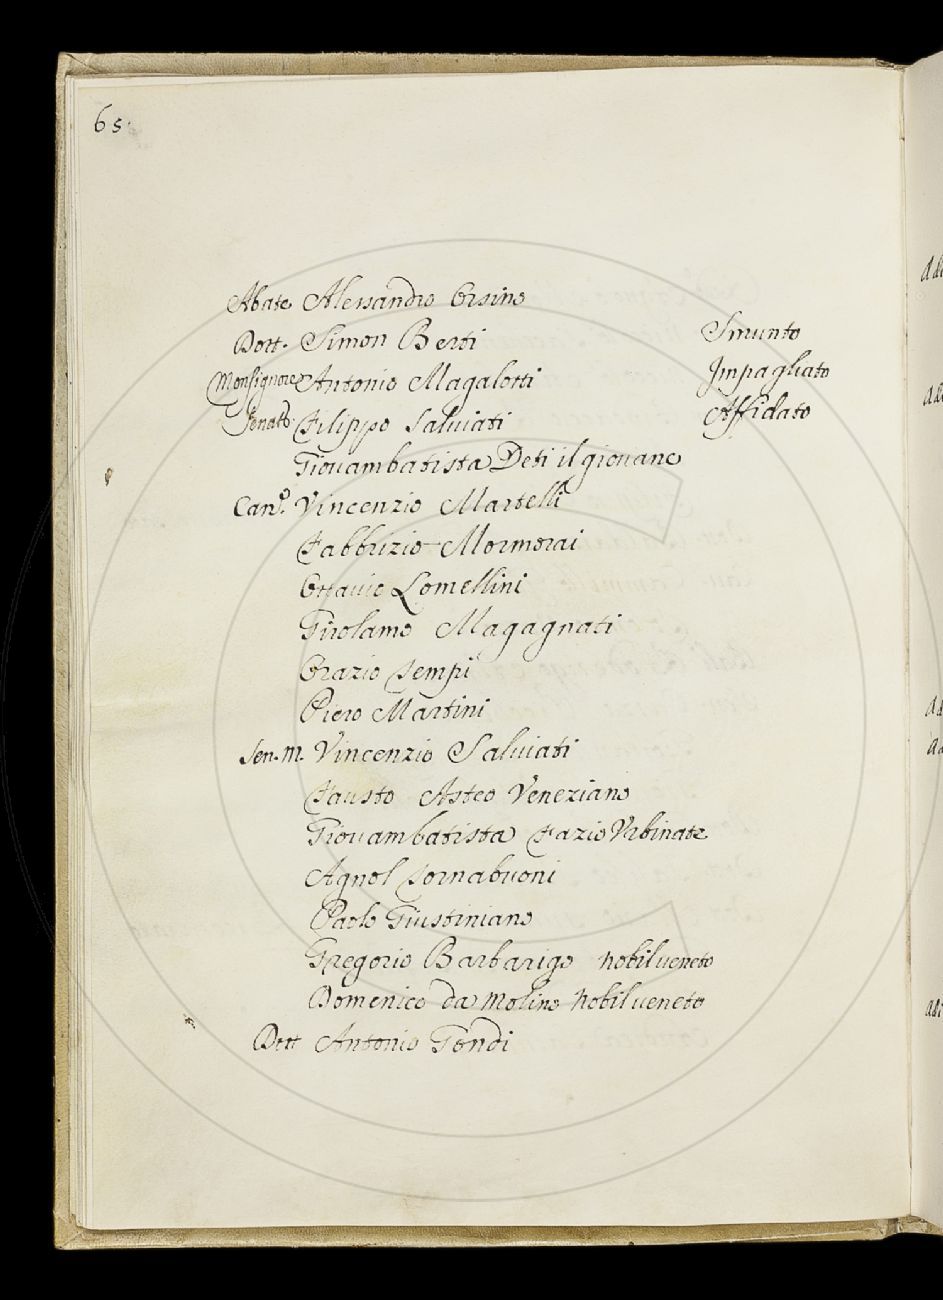 65.
Abate Alessandro Orsino
Dott. Simon Berti Smunto
Monsignore Antonio Magalotti Impagliato
Senat.e Filippo Salviati Affidato
Giovambatista Deti il giovane
Can.o Vincenzio Martelli
Fabbrizio Mormorai
Ottavio Lomellini
Girolamo Magagnati
Orazio Tempi
Piero Martini
Sen. M. Vincenzio Salviati
Fausto Asteo Veneziano
Giovambatista Fazio Urbinate
Agnol Tornabuoni
Paolo Giustiniano
Gregorio Barbarigo nobil veneto
Domenico da Molino nobil veneto
Dott Antonio Tondi